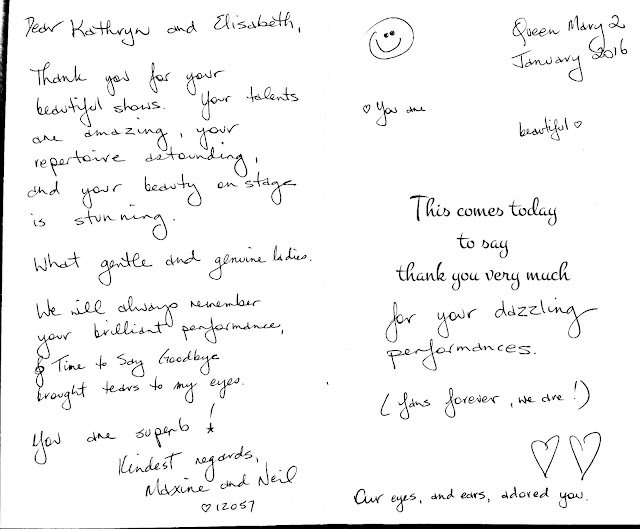 Dear Kathryn and Elisabeth,
Thank you for your
beautiful shows. Your talents
are amazing, your
repertoire astounding,
and your beauty on stage
is stunning.
What gentle and genuine ladies.
We will always remember
your brilliant performance,
& Time to Say Goodbye
brought tears to my eyes.
You are superb!
Kindest regards,
Maxine and Neil
♡12057
Queen Mary 2
January 2016
♡You are
beautiful♡
This comes today
to say
thank you very much
for your dazzling
performances.
(fans forever, we are!)
Our eyes, and ears, adored you.